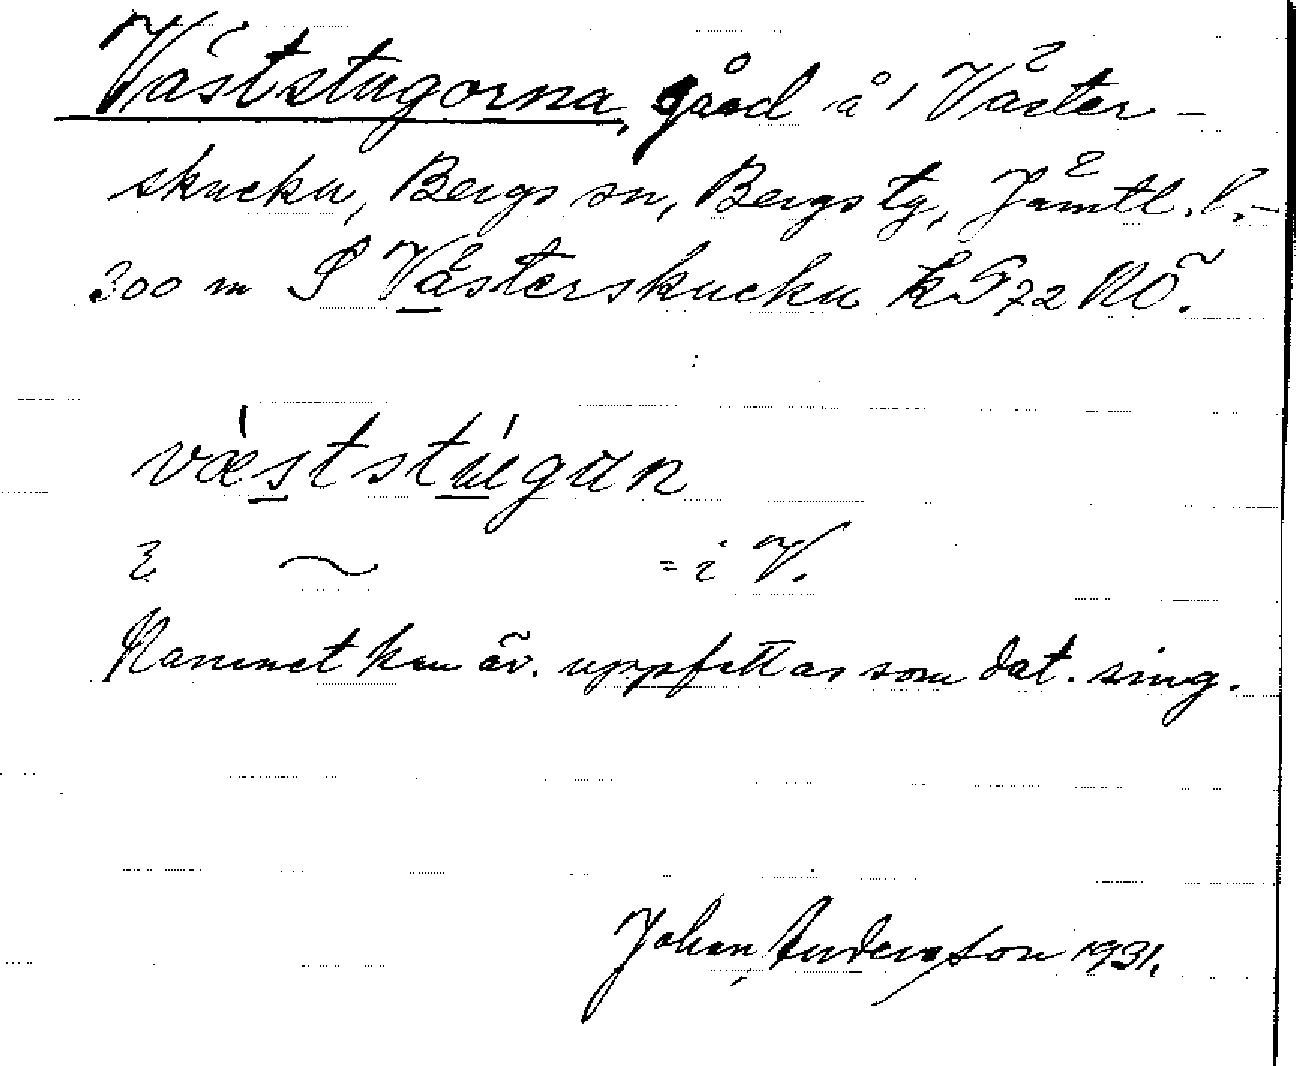 Väststugorna, gård i Väster-
skucku, Bergs sn, Bergs tg, Jämtl. l.–
300 m S Västerskucku k S 72 NÖ.
væststugun
i ~ = i V.
Namnet kan äv. uppfattas som dat. sing.
Johan Andersson 1931.